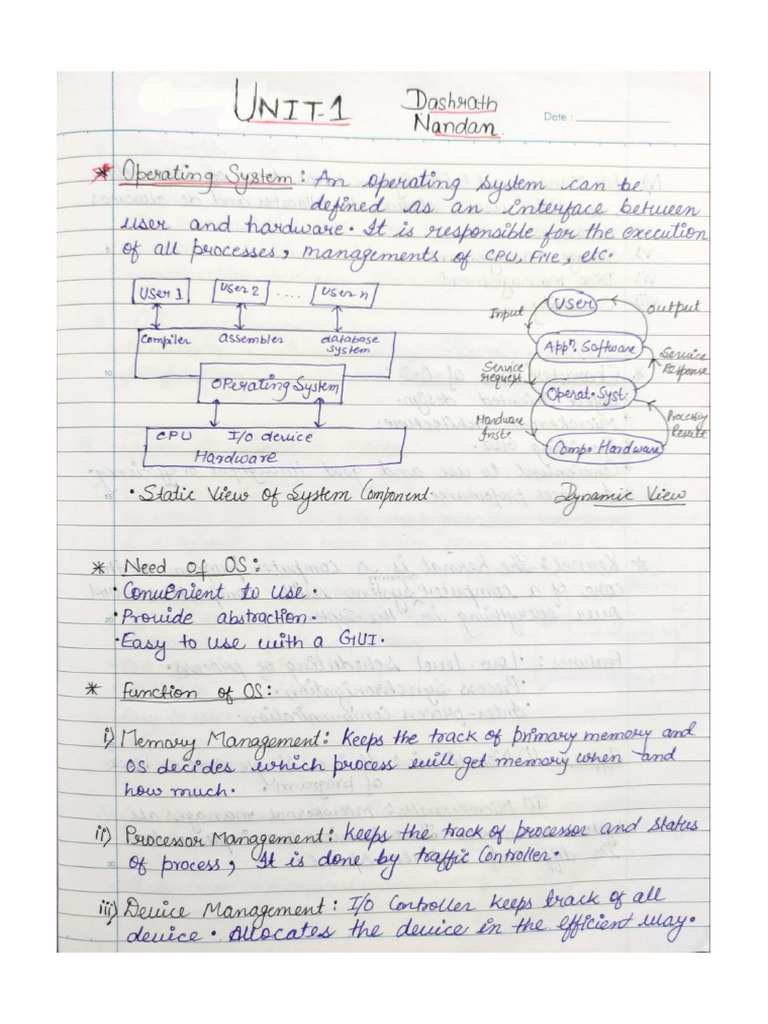 UNIT-1
Dashrath
Nandan.
Date :
* Operating System : An operating system can be
defined as an interface between
user and hardware. It is responsible for the execution
of all processes, managements of CPU, File, etc.
User 1 User 2 .... User n
Compiler assembler database
system
Operating System
CPU I/O device
Hardware
• Static View of System Component.
User
Input output
Appⁿ. Software
Service
request
Service
Response
Operat. Syst.
Hardware
Inst.
Processing
Result
Comp. Hardware
Dynamic View
* Need of OS :
• Convenient to use.
• Provide abstraction.
• Easy to use with a GUI.
* Function of OS :
i) Memory Management : Keeps the track of primary memory and
OS decides which process will get memory when and
how much.
ii) Processor Management : Keeps the track of processor and status
of process, It is done by traffic Controller.
iii) Device Management : I/O Controller keeps track of all
device. Allocates the device in the efficient way.